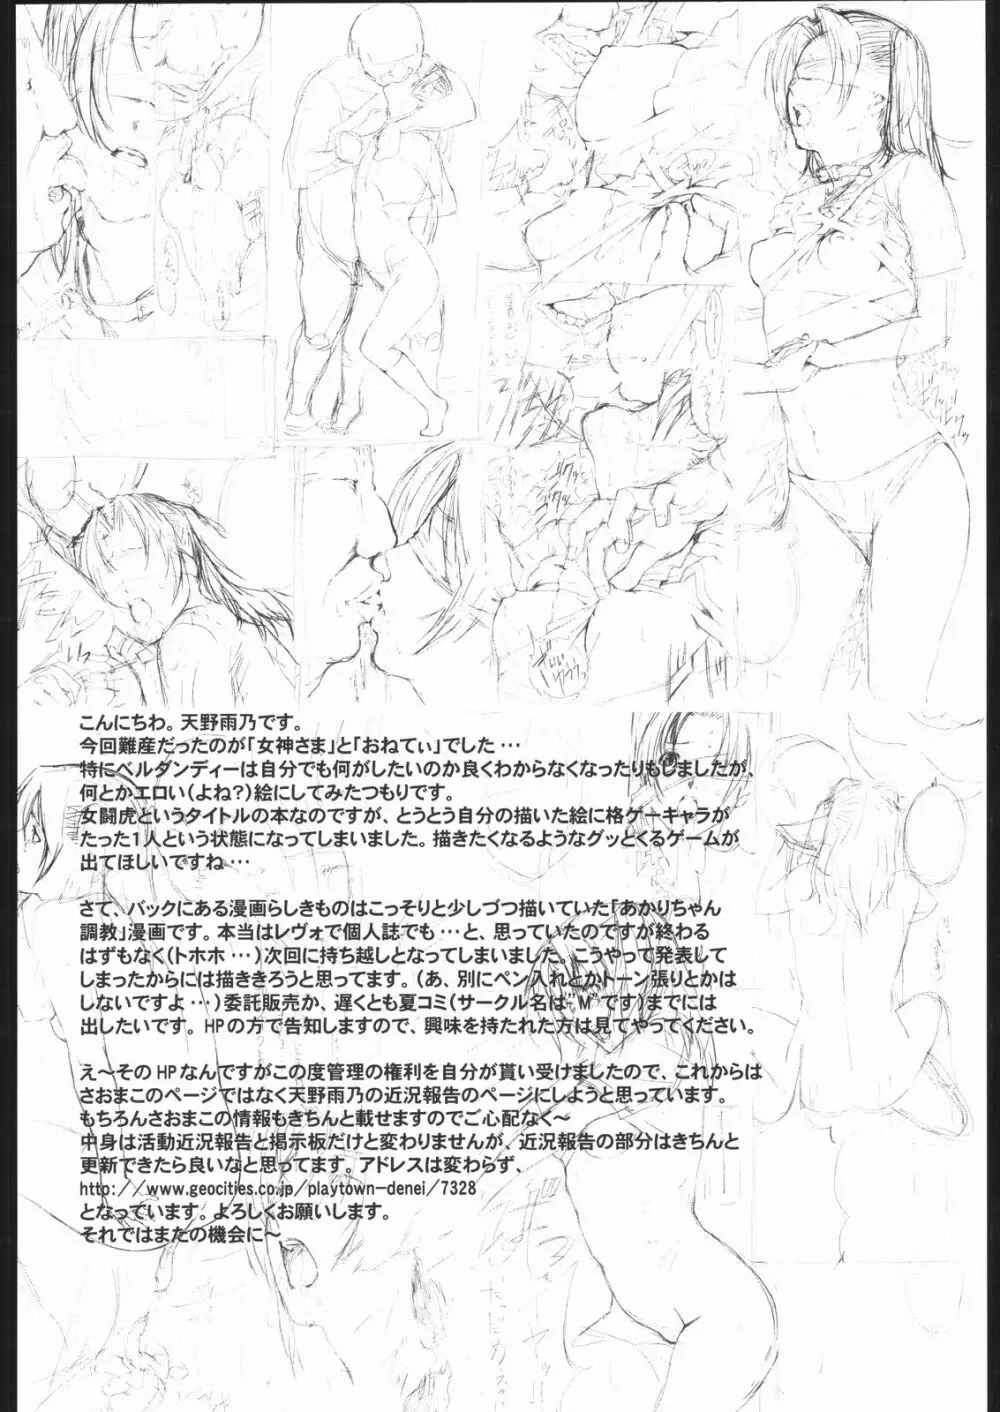 こんにちわ。天野雨乃です。
今回難産だったのが「女神さま」と「おねてぃ」でした…
特にベルダンディーは自分でも何がしたいのか良くわからなくなったりもしましたが、
何とかエロい(よね?)絵にしてみたつもりです。
女闘虎というタイトルの本なのですが、とうとう自分の描いた絵に格ゲーキャラが
たった1人という状態になってしまいました。描きたくなるようなグッとくるゲームが
出てほしいですね…
さて、バックにある漫画らしきものはこっそりと少しづつ描いていた「あかりちゃん
調教」漫画です。本当はレヴォで個人誌でも…と、思っていたのですが終わる
はずもなく(トホホ…)次回に持ち越しとなってしまいました。こうやって発表して
しまったからには描ききろうと思ってます。(あ、別にペン入れとかトーン張りとかは
しないですよ…)委託販売か、遅くとも夏コミ(サークル名は"M"です)までには
出したいです。HPの方で告知しますので、興味を持たれた方は見てやってください。
え〜そのHPなんですがこの度管理の権利を自分が貰い受けましたので、これからは
さおまこのページではなく天野雨乃の近況報告のページにしようと思っています。
もちろんさおまこの情報もきちんと載せますのでご心配なく〜
中身は活動近況報告と掲示板だけと変わりませんが、近況報告の部分はきちんと
更新できたら良いなと思ってます。アドレスは変わらず、
http://www.geocities.co.jp/playtown-denei/7328
となっています。よろしくお願いします。
それではまたの機会に〜